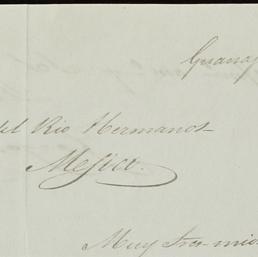 Guana
del Rio Hermanos
Mejico.
Muy Sres. mios